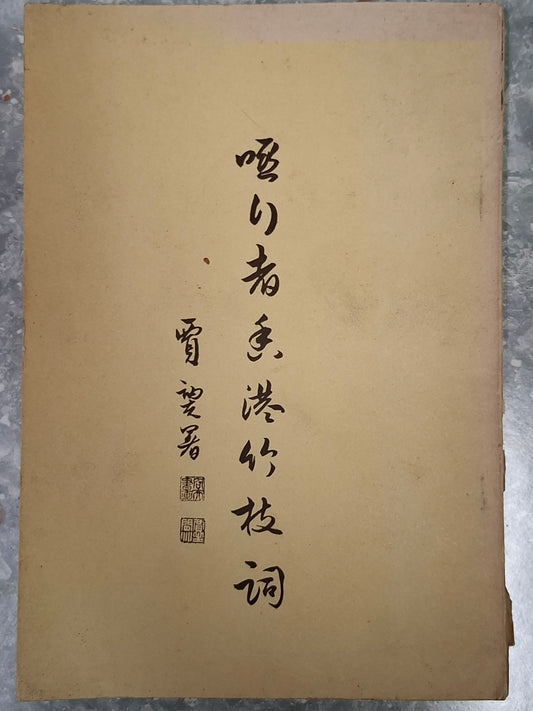 啞行者香港竹枝詞
賈訥夫署